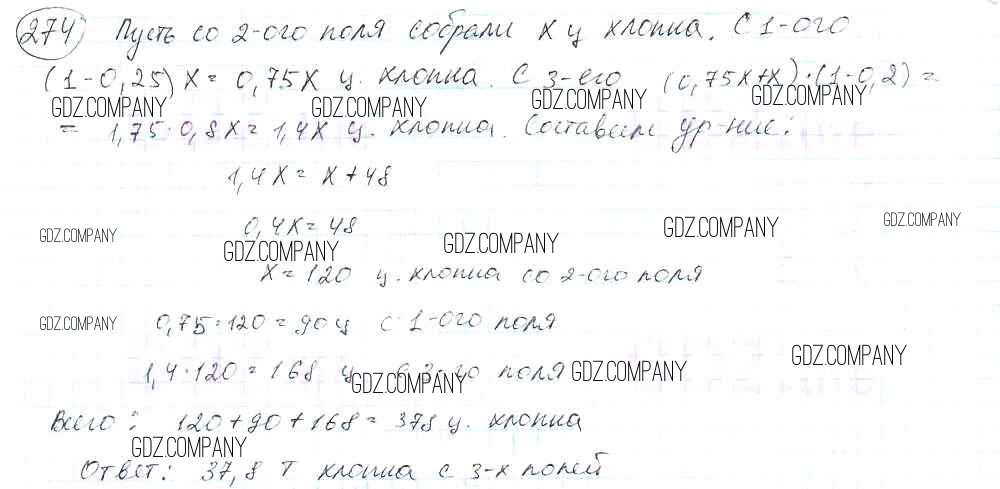 274) Пусть со 2-ого поля собрали x ц хлопка. С 1-ого
(1-0,25)x = 0,75x ц. хлопка. С 3-его (0,75x+x)·(1-0,2) =
GDZ.COMPANY GDZ.COMPANY GDZ.COMPANY GDZ.COMPANY
= 1,75·0,8x = 1,4x ц. хлопка. Составим ур-ние:
1,4x = x + 48
0,4x = 48
GDZ.COMPANY GDZ.COMPANY GDZ.COMPANY GDZ.COMPANY GDZ.COMPANY
x = 120 ц. хлопка со 2-ого поля
GDZ.COMPANY 0,75·120 = 90 ц с 1-ого поля
1,4·120 = 168 ц с 3-го поля
GDZ.COMPANY GDZ.COMPANY GDZ.COMPANY
Всего: 120+90+168 = 378 ц. хлопка
GDZ.COMPANY
Ответ: 37,8 т хлопка с 3-х полей